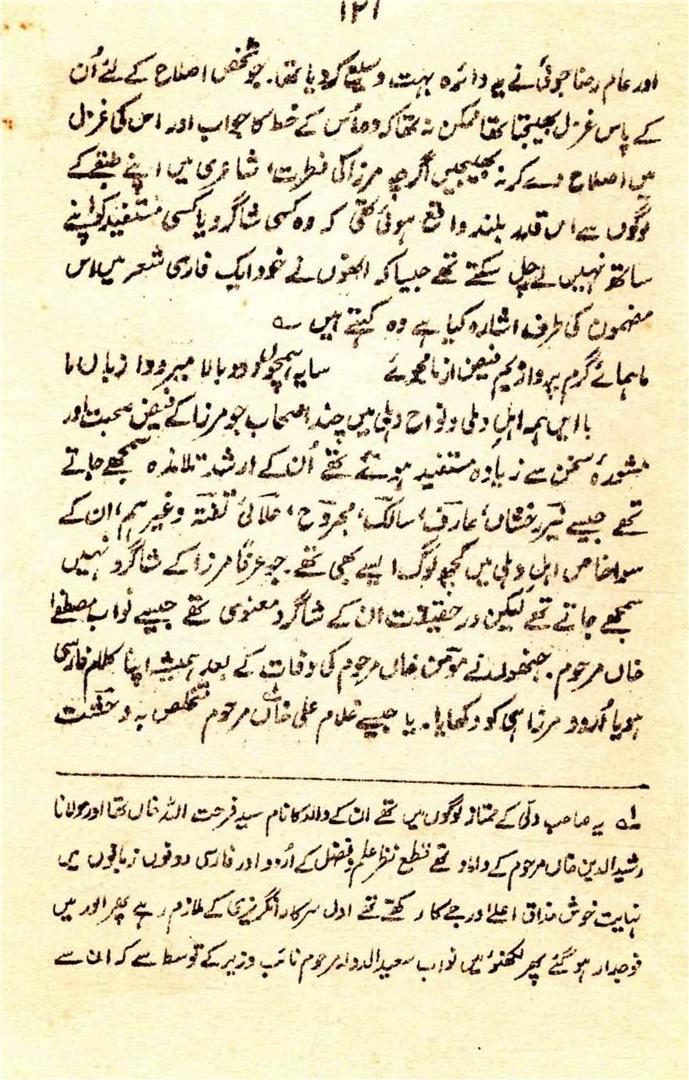 ۱۲۱
اور عام رضا جوئی نے یہ دائرہ بہت وسیع کر دیا تھا۔ جو شخص اصلاح کے لئے اُن
کے پاس غزل بھیجتا تھا ممکن نہ تھا کہ وہ اُس کے خط کا جواب اور اس کی غزل
میں اصلاح دے کر نہ بھیجیں اگرچہ مرزا کی فطرت، شاعری میں اپنے طبقے کے
لوگوں سے اس قدر بلند واقع ہوئی تھی کہ وہ کسی شاگرد یا کسی مستفید کو اپنے
ساتھ نہیں لے چل سکتے تھے جیسا کہ انھوں نے خود ایک فارسی شعر میں اس
مضمون کی طرف اشارہ کیا ہے وہ کہتے ہیں ؎
ما ہمائے گرم پروازیم فیض از ما مجوئے سایہ ہمچو دود بالا میرود از بال ما
با ایں ہمہ اہل دہلی و نواح دہلی میں چند اصحاب جو مرزا کے فیض صحبت اور
مشورۂ سخن سے زیادہ مستفید ہوئے تھے اُن کے ارشد تلامذہ سمجھے جاتے
تھے جیسے نیّر رخشاں، عارف، سالک، مجروح، علائی تفتہ وغیرہم، ان کے
سوا خاص اہل دہلی میں کچھ لوگ ایسے بھی تھے۔ جو عرفاً مرزا کے شاگرد نہیں
سمجھے جاتے تھے لیکن درحقیقت ان کے شاگرد معنوی تھے جیسے نواب مصطفٰے
خاں مرحوم۔ جنھوں نے مومن خاں مرحوم کی وفات کے بعد ہمیشہ اپنا کلام فارسی
ہو یا اُردو مرزا ہی کو دکھایا۔ یا جیسے غلام علی خاں مرحوم متخلص بہ وحشت
۱؎ یہ صاحب دلّی کے ممتاز لوگوں میں تھے ان کے والد کا نام سید فرحت اللہ خاں تھا اور مولانا
رشید الدین خاں مرحوم کے داماد تھے قطع نظر علم و فضل کے اُردو اور فارسی دونوں زبانوں میں
نہایت خوش مذاق اعلےٰ درجے کا رکھتے تھے اول سرکار انگریزی کے ملازم رہے پھر اور میں
فوجدار ہو گئے پھر لکھنؤ میں نواب سعید الدولہ مرحوم نائب وزیر کے توسط سے کہ ان سے